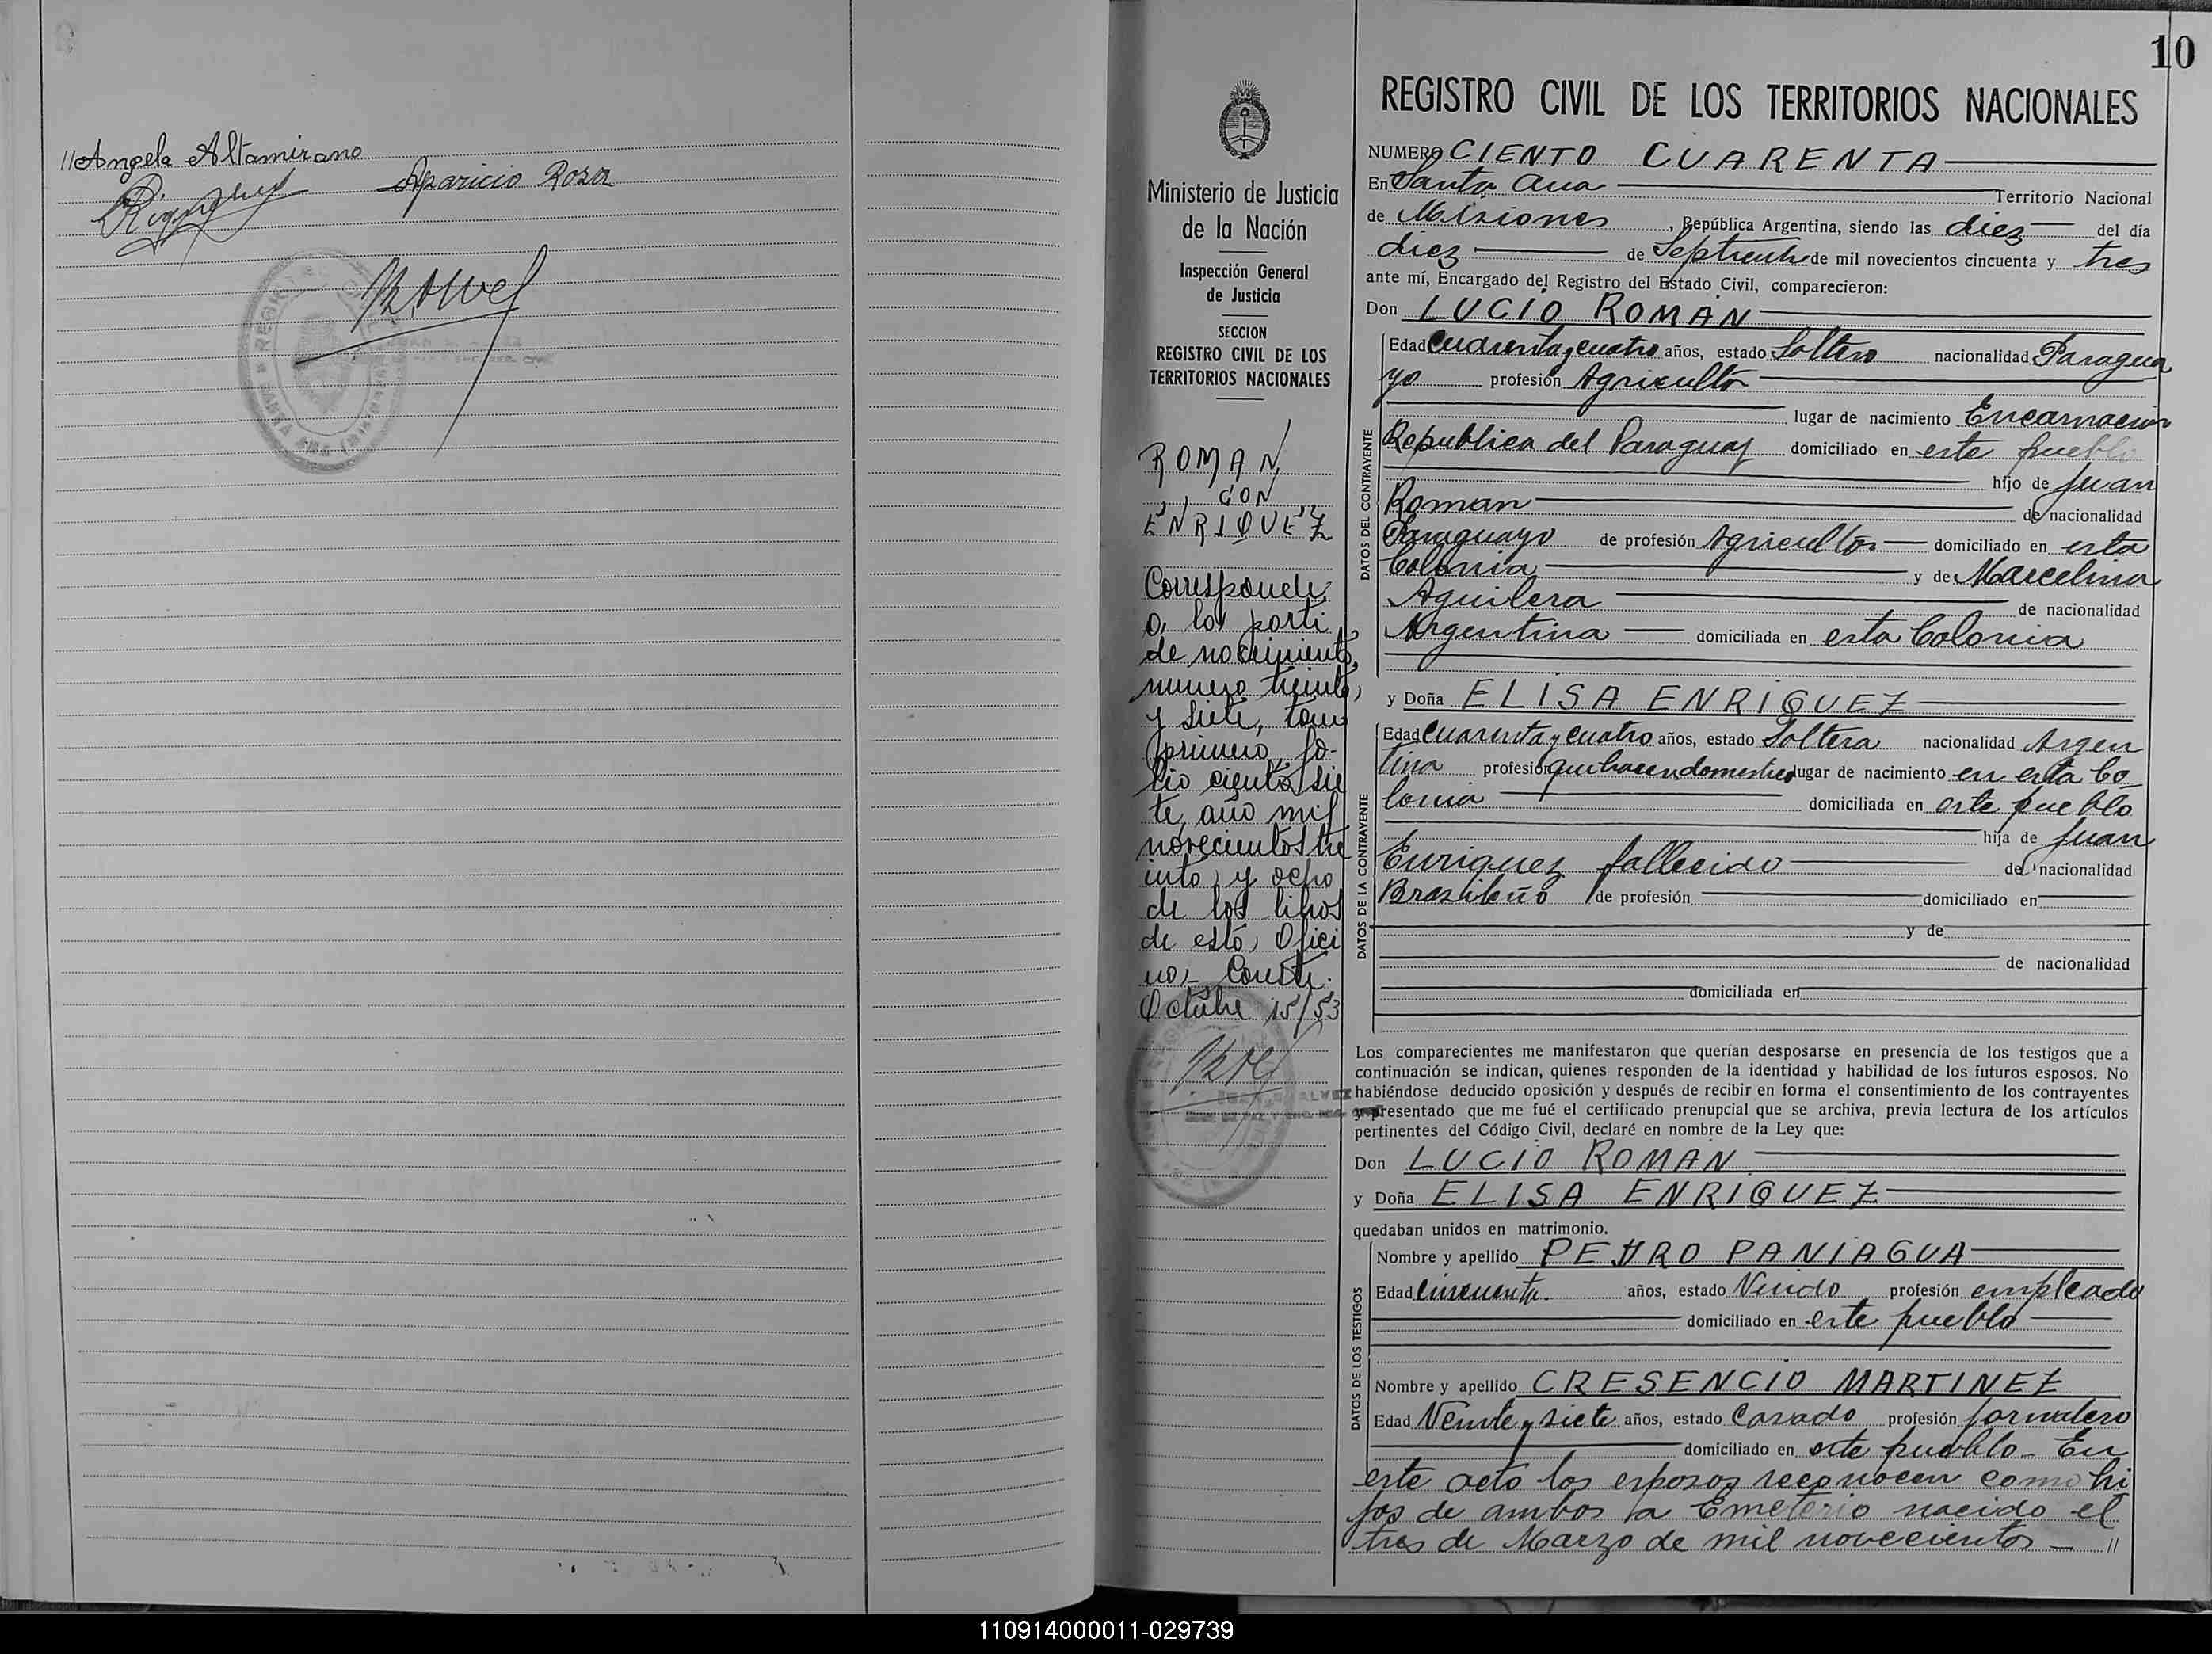 //Angela Altamirano
Aparicio Rosa
10
REGISTRO CIVIL DE LOS TERRITORIOS NACIONALES
Ministerio de Justicia
de la Nación
Inspección General
de Justicia
SECCION
REGISTRO CIVIL DE LOS
TERRITORIOS NACIONALES
ROMAN
CON
ENRIQUEZ
Corresponde
a la parti
de nacimiento,
numero treinta
y siete, tomo
primero, fo-
lio ciento sie
te, año mil
novecientos tre
inta y ocho
de los libros
de esta Ofici
na, Conste.
Octubre 15/53
NUMERO CIENTO CUARENTA
En Santa Ana Territorio Nacional
de Misiones, República Argentina, siendo las diez del día
diez de Septiembre de mil novecientos cincuenta y tres
ante mí, Encargado del Registro del Estado Civil, comparecieron:
Don LUCIO ROMAN
DATOS DEL CONTRAYENTE
Edad Cuarenta y cuatro años, estado Soltero nacionalidad Paragua
yo profesión Agricultor
lugar de nacimiento Encarnacion
Republica del Paraguay domiciliado en este pueblo
hijo de Juan
Roman de nacionalidad
Paraguayo de profesión Agricultor domiciliado en esta
Colonia y de Marcelina
Aguilera de nacionalidad
Argentina domiciliada en esta Colonia
y Doña ELISA ENRIQUEZ
DATOS DE LA CONTRAYENTE
Edad Cuarenta y cuatro años, estado Soltera nacionalidad Argen
tina profesión quehaceres domestico lugar de nacimiento en esta Co-
lonia domiciliada en este pueblo
hija de Juan
Enriquez fallecido de nacionalidad
Brasileño de profesión domiciliado en
y de
de nacionalidad
domiciliada en
Los comparecientes me manifestaron que querían desposarse en presencia de los testigos que a
continuación se indican, quienes responden de la identidad y habilidad de los futuros esposos. No
habiéndose deducido oposición y después de recibir en forma el consentimiento de los contrayentes
y presentado que me fué el certificado prenupcial que se archiva, previa lectura de los artículos
pertinentes del Código Civil, declaré en nombre de la Ley que:
Don LUCIO ROMAN
y Doña ELISA ENRIQUEZ
quedaban unidos en matrimonio.
DATOS DE LOS TESTIGOS
Nombre y apellido PEDRO PANIAGUA
Edad Cincuenta. años, estado Viudo profesión empleado
domiciliado en este pueblo
Nombre y apellido CRESENCIO MARTINEZ
Edad Veinte y siete años, estado Casado profesión Jornalero
domiciliado en este pueblo- En
este acto los esposos reconocen como hi
jos de ambos a Emeterio nacido el
tres de Marzo de mil novecientos - //
110914000011-029739